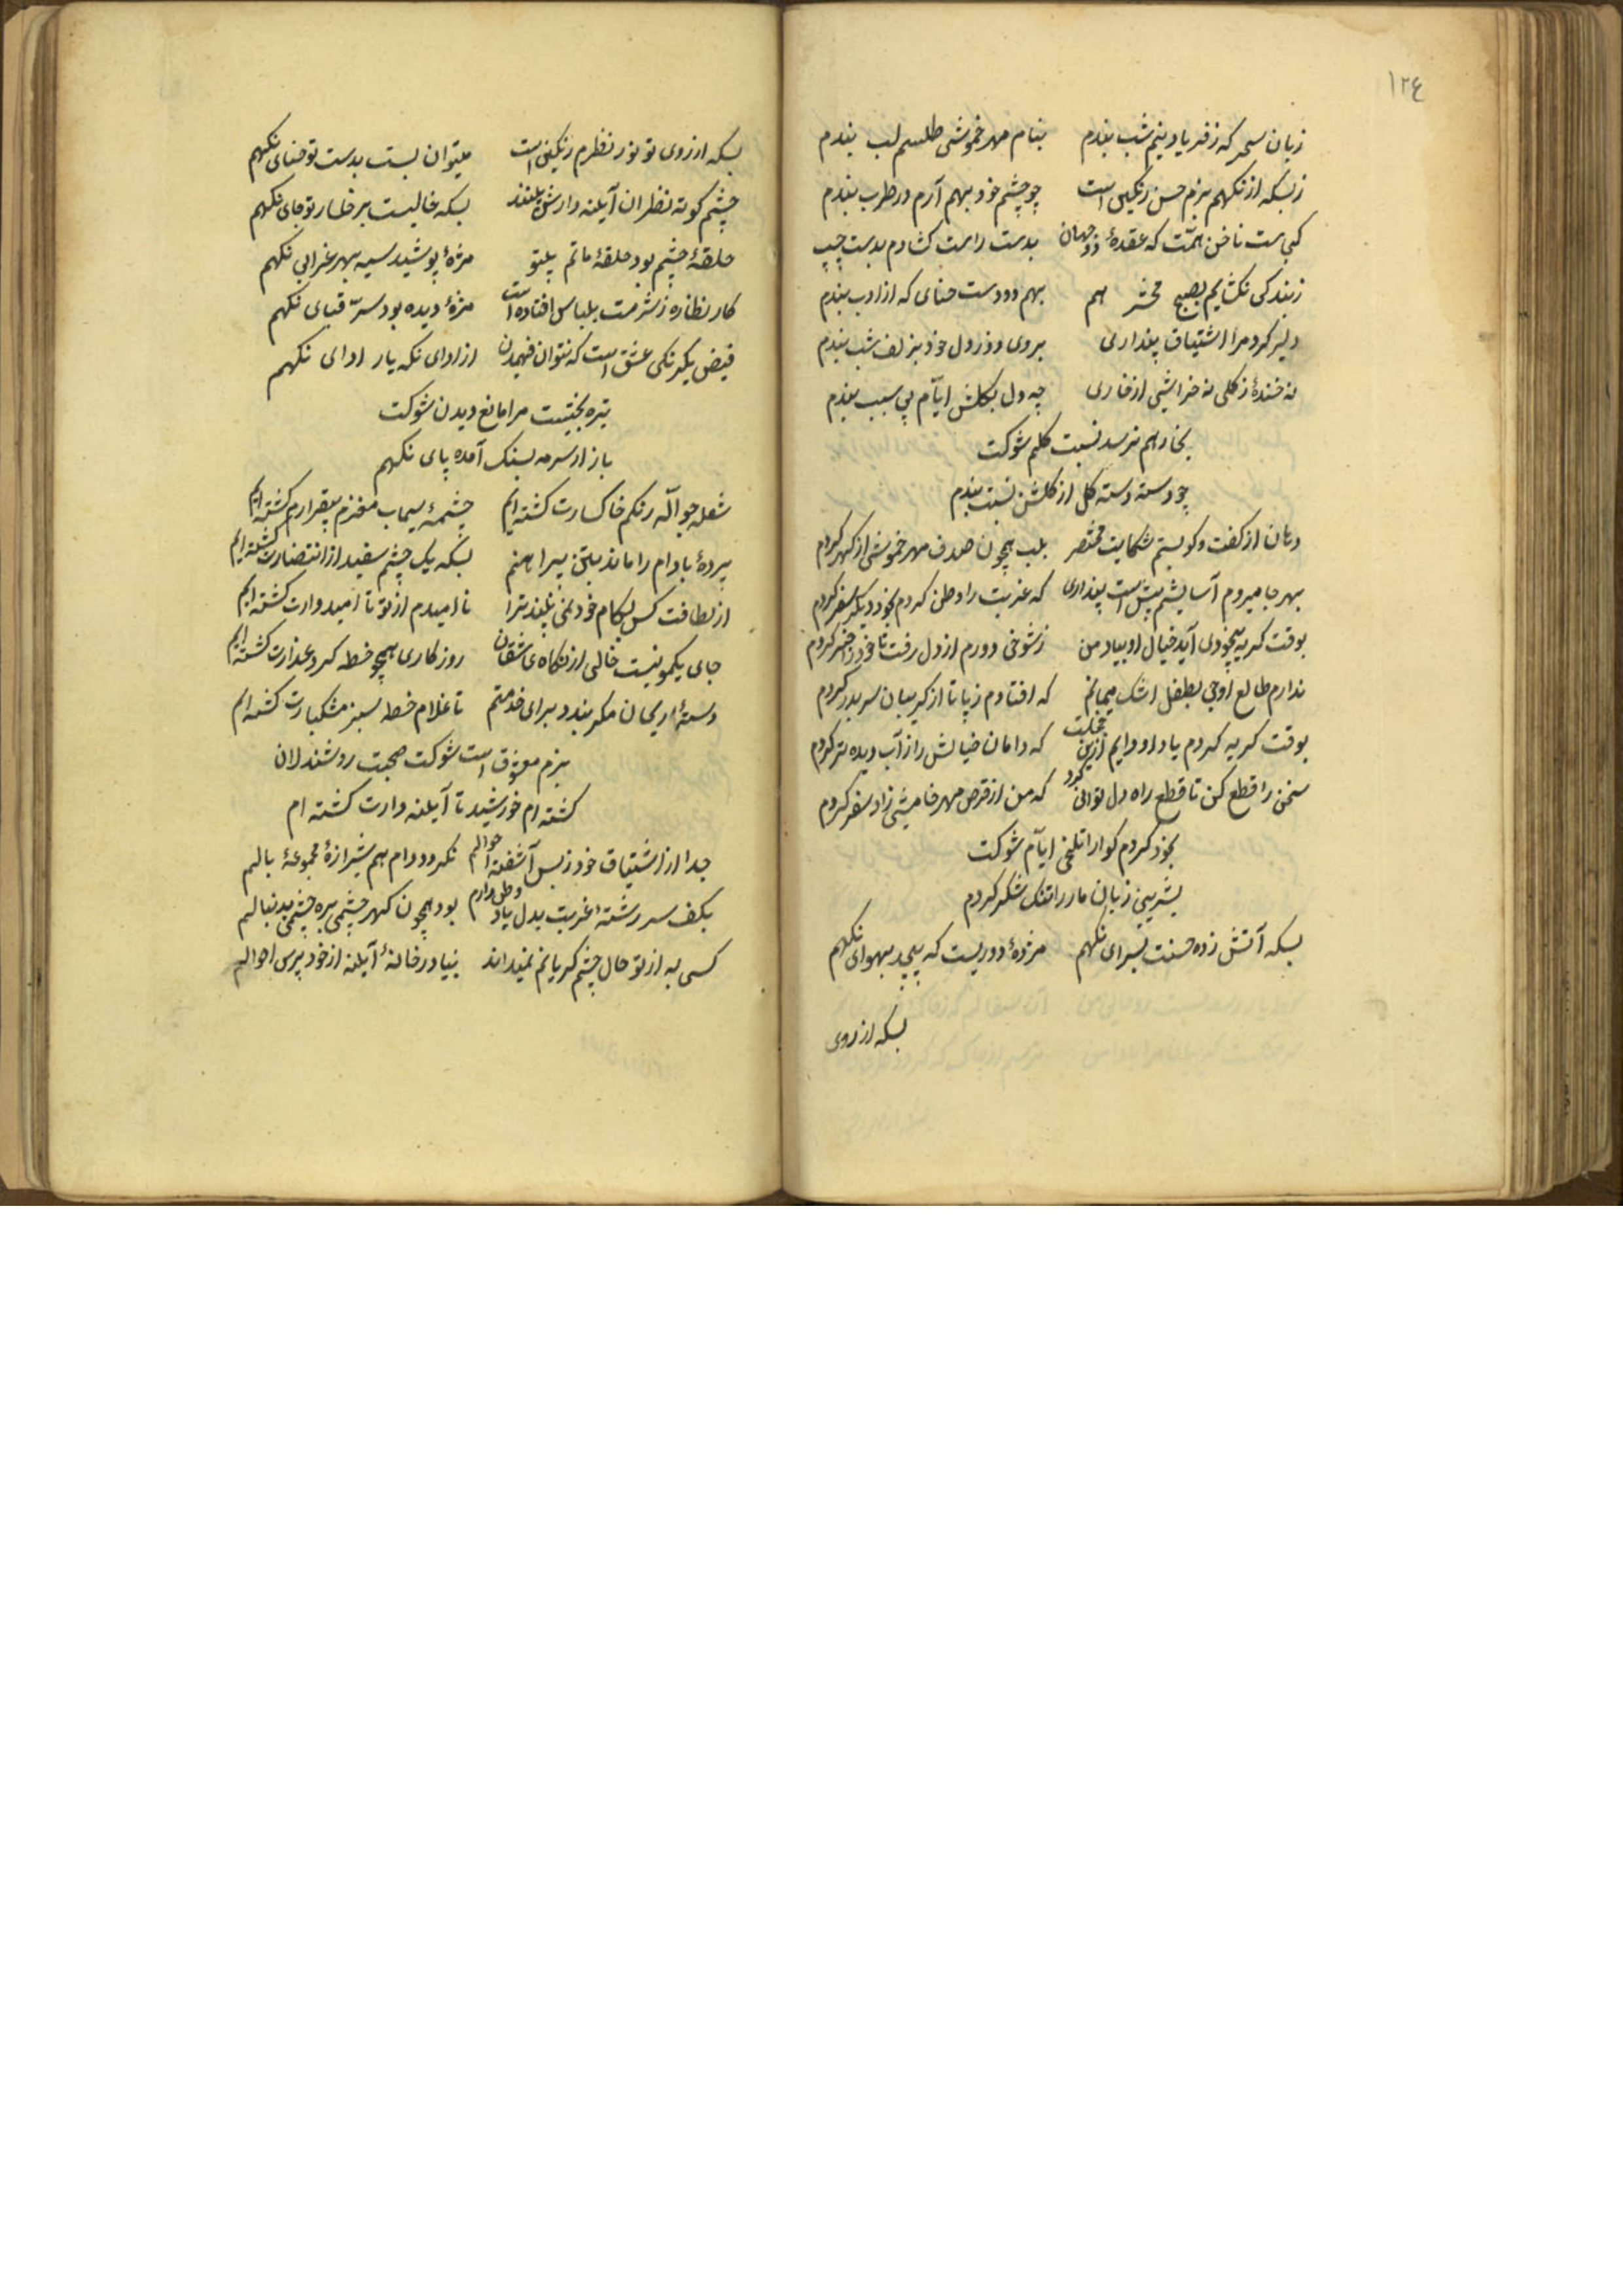 ١٢٤
زبان سحر که ز فریاد نیم شب بندم بنام مهر خموشی طلسم لب بندم
زبسکه از نکهم بزم حسن رنکین است چو چشم خود بهم آرم در طرب بندم
کجاست ناخن همّت که عقدهٔ دو جهان بدست راست کشادم بدست چپ بندم
ز بندکی نکشایم بصبح محشر هم بهم دو دست حنای که از ادب بندم
دلیر کرد مرا اشتیاق پنداری بروی روز دل خود بزلف شب بندم
نه خندهٔ ز کلی نه خراشی از خاری چه دل بکلشن ایّام بی سبب بندم
بخار هم نرسد نسبت کلم شوکت
چو دسته دسته کل از کلشن نسب بندم
دهان از کفت وکو بستم شکایت مختصر کردم بلب همچون صدف مهر خموشی از کهر کردم
بهر جا میروم آسایشم پیش است پنداری که غربت را وطن کردم بخود دیکر سفر کردم
بوقت کریه بیخودی آید خیال او بیاد من ز شوخی دورم از دل رفت تا خود را خبر کردم
ندارم طالع اوجی بطفل اشک میمانم که افتادم ز پا تا از کریبان سر بدر کردم
بوقت کریه کردم یاد او دایم ازین خجلت که دامان خیالش را ز آب دیده تر کردم
سخن را قطع کن تا قطع راه دل توانی کرد که من از قرص مهر خامشی زاد سفر کردم
بخود کردم کوارا تلخی ایّام شوکت
بشیرینی زبان مار را تنک شکر کردم
بسکه آتش زده حسنت بسرای نکهم مژهٔ دودیست که پیچد بهوای نکهم
بسکه از روی
بسکه از روی تو نور نظرم رنکین است میتوان بست بدست تو حنای نکهم
چشم کوته نظران آینه دارش بینند بسکه خالیست بر خسار تو جای نکهم
حلقهٔ چشم بود حلقهٔ ماتم بیتو مژهٔ پوشید سیه بهر عزای نکهم
کار نظاره ز شرمت بلباس افتاده است مژهٔ دیده بود سرّ قبای نکهم
فیض یکرنکی عشق است که نتوان فهمیدن از ادای نکه یار ادای نکهم
تیره بختیست مرا مانع دیدن شوکت
باز از سرمه بسنک آمده پای نکهم
شعله جوّاله رنکم خاکسارت کشته ایم چشمهٔ سیماب مغزم بیقرارم کشته ایم
پردهٔ بادام را ماند بتن پیراهنم بسکه یک چشم سفید از انتضارت کشته ایم
از لطافت کس بکام خود نمی بیند ترا ناامیدم از تو تا امیدوارت کشته ایم
جای یکمو نیست خالی از نکاه عاشقان روزکاری همچو خط کرد عذارت کشته ایم
دستهٔ ریحان مکر بندد برای خدمتم تا غلام خط سبز مشکبارت کشته ایم
بزم معشوق است شوکت صحبت روشندلان
کشته ام خورشید تا آینه دارت کشته ام
جدا از اشتیاق خود ز بس آشفته احوالم نکردد دام هم شیرازهٔ مجموعهٔ بالم
بکف سررشتهٔ غربت بدل یاد وطن دارم بود همچون کهر چشمی بره چشمی بدنبالم
کسی به از تو حال چشم کریانم نمیداند بیا در خانهٔ آینه از خود پرس احوالم